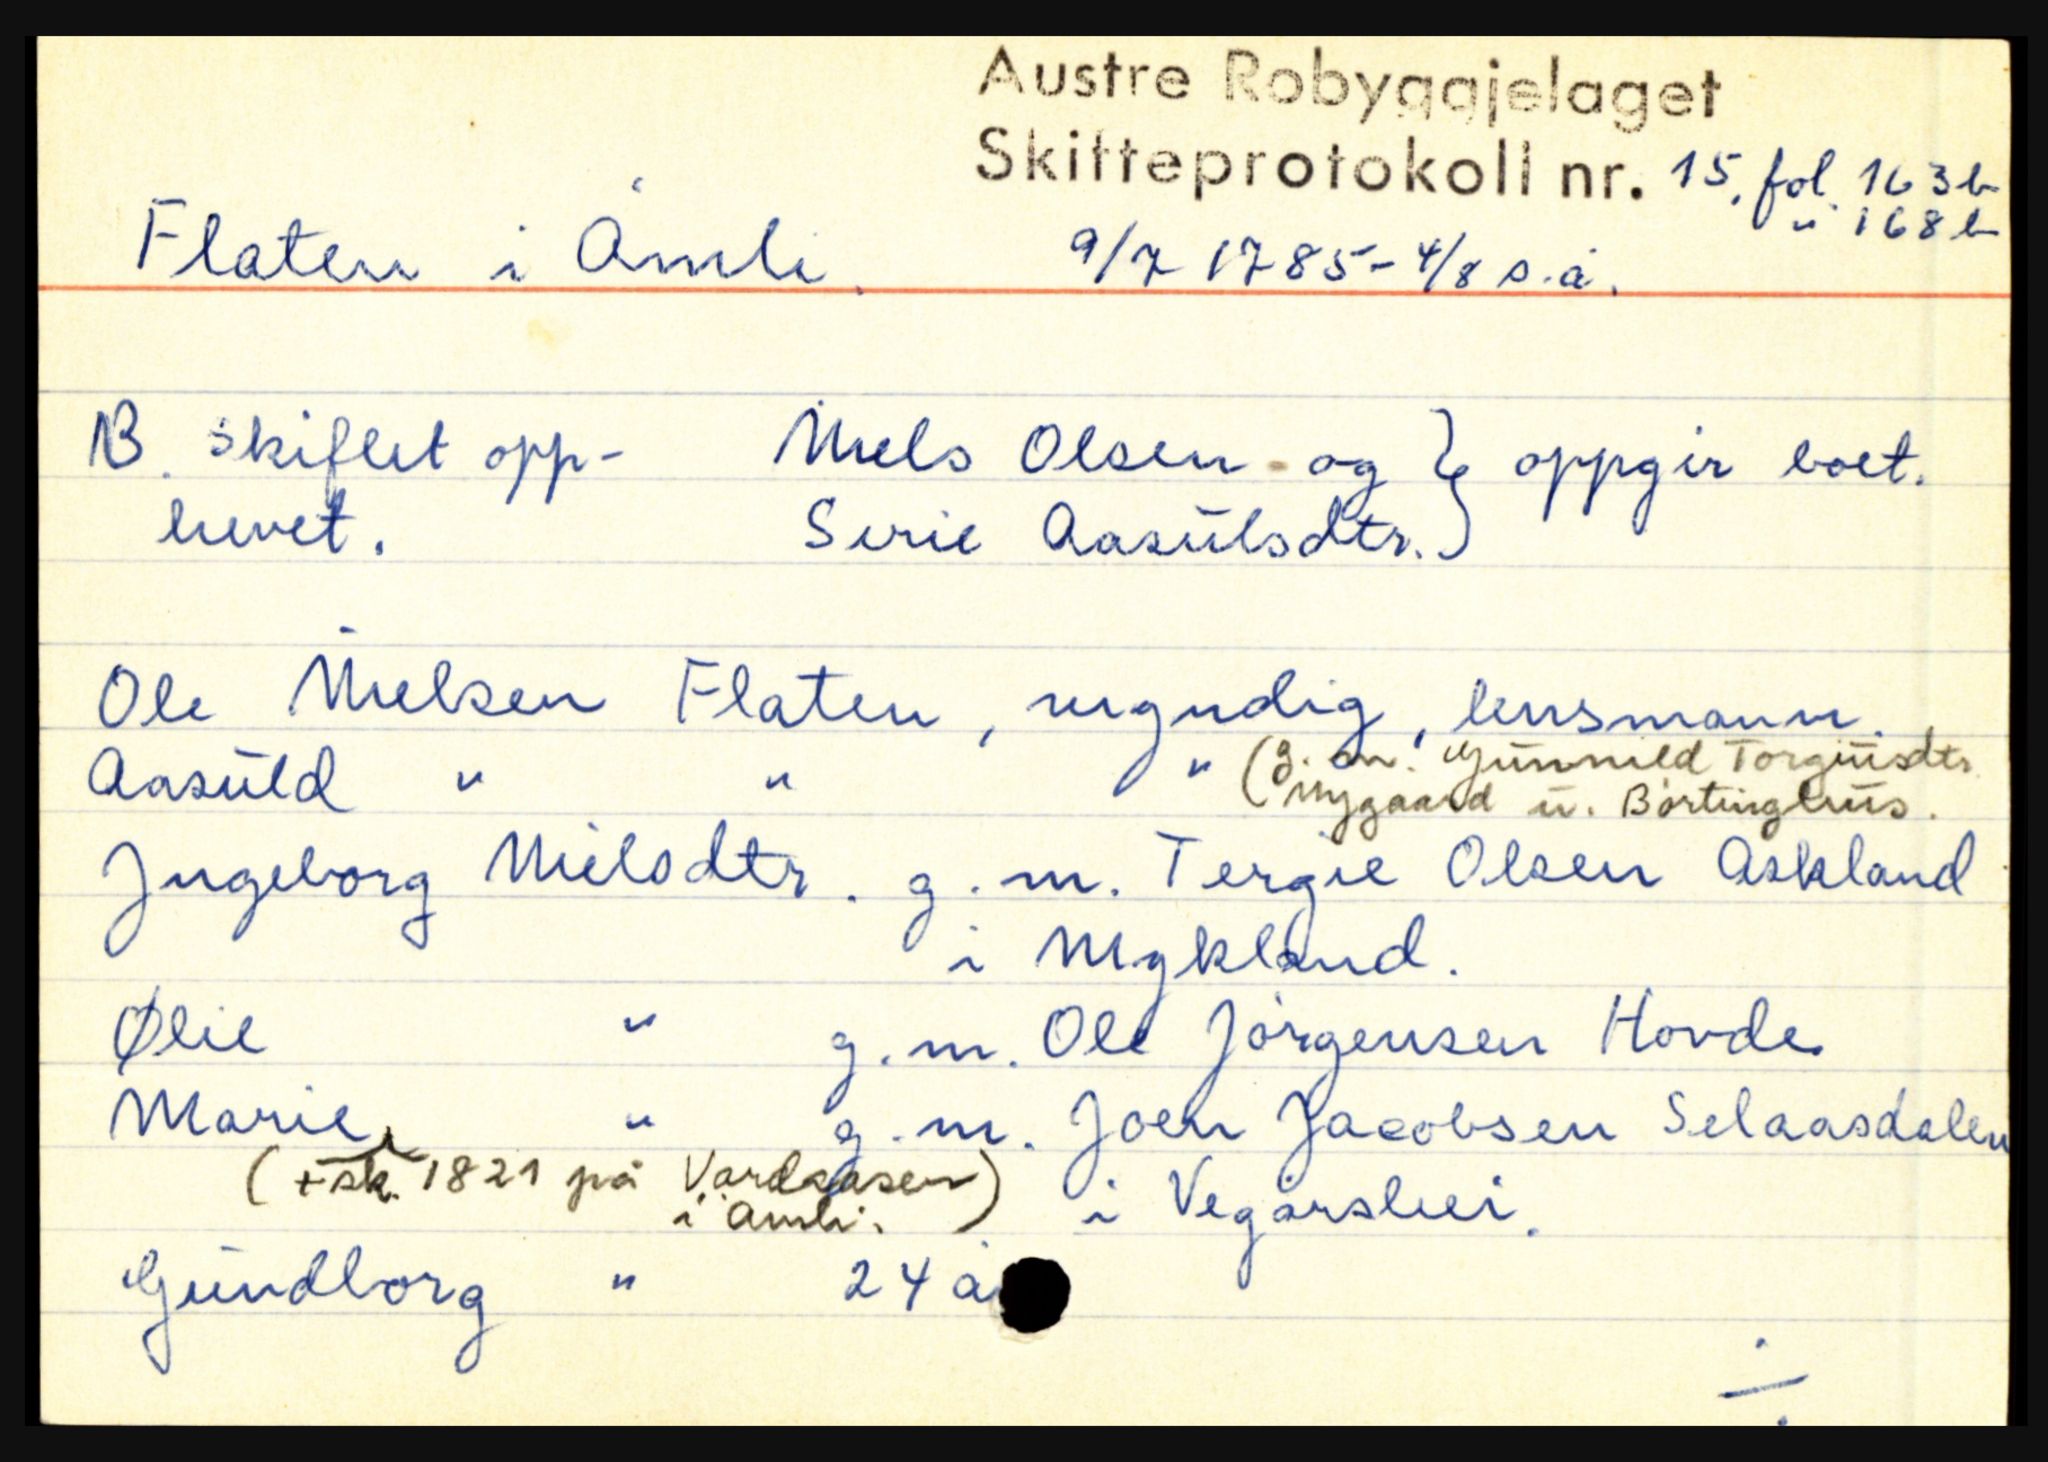 Austre Robyggjelaget
Skifteprotokoll nr. 15, fol. 163b
" 168b
Flaten i Åmli. 9/7 1785 - 4/8 s.å.
B. skiftet opp- Niels Olsen og } oppgir boet.
hevet. Sirie Aasulsdtr. }
Ole Nielsen Flaten, myndig, lensmann.
Aasuld " " " (g.m. Gunnild Torgusdtr.
Nygaard u. Børtinghus.
Ingeborg Nielsdtr. g.m. Tergie Olsen Askland
i Mykland.
Ølie " g.m. Ole Jørgensen Hovde
Marie " g.m. Joen Jacobsen Selaasdalen
(+ sk. 1821 på Vardaasen
i Åmli.) i Vegårshei.
Gundborg " 24 å
÷